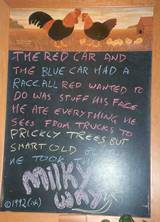 THE RED CAR AND
THE BLUE CAR HAD A
RACE. ALL RED WANTED TO
DO WAS STUFF HIS FACE
HE ATE EVERYTHING HE
SEES FROM TRUCKS TO
PRICKLY TREES BUT
SMART OLD
HE TOOK THE
MILKY
WAY
©1992(ish)